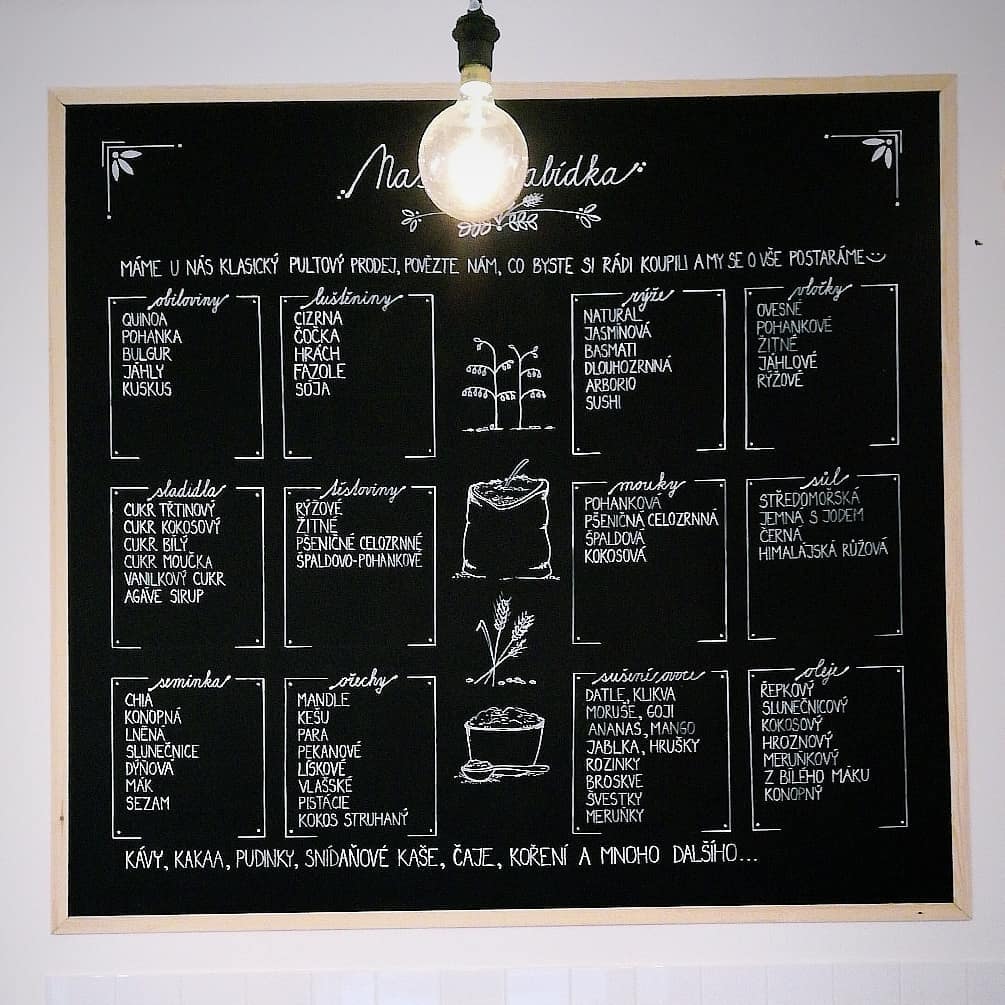 MÁME U NÁS KLASICKÝ PULTOVÝ PRODEJ, POVĚZTE NÁM, CO BYSTE SI RÁDI KOUPILI A MY SE O VŠE POSTARÁME
obiloviny
QUINOA
POHANKA
BULGUR
JÁHLY
KUSKUS
luštěniny
CIZRNA
ČOČKA
HRÁCH
FAZOLE
SÓJA
rýže
NATURAL
JASMÍNOVÁ
BASMATI
DLOUHOZRNNÁ
ARBORIO
SUSHI
vločky
OVESNÉ
POHANKOVÉ
ŽITNÉ
JÁHLOVÉ
RÝŽOVÉ
sladidla
CUKR TŘTINOVÝ
CUKR KOKOSOVÝ
CUKR BÍLÝ
CUKR MOUČKA
VANILKOVÝ CUKR
AGÁVE SIRUP
těstoviny
RÝŽOVÉ
ŽITNÉ
PŠENIČNÉ CELOZRNNÉ
ŠPALDOVO-POHANKOVÉ
mouky
POHANKOVÁ
PŠENIČNÁ CELOZRNNÁ
ŠPALDOVÁ
KOKOSOVÁ
sůl
STŘEDOMOŘSKÁ
JEMNÁ S JODEM
ČERNÁ
HIMALÁJSKÁ RŮŽOVÁ
semínka
CHIA
KONOPNÁ
LNĚNÁ
SLUNEČNICE
DÝŇOVÁ
MÁK
SEZAM
ořechy
MANDLE
KEŠU
PARA
PEKANOVÉ
LÍSKOVÉ
VLAŠSKÉ
PISTÁCIE
KOKOS STRUHANÝ
sušené ovoce
DATLE, KLIKVA
MORUŠE, GOJI
ANANAS, MANGO
JABLKA, HRUŠKY
ROZINKY
BROSKVE
ŠVESTKY
MERUŇKY
oleje
ŘEPKOVÝ
SLUNEČNICOVÝ
KOKOSOVÝ
HROZNOVÝ
MERUŇKOVÝ
Z BÍLÉHO MÁKU
KONOPNÝ
KÁVY, KAKAA, PUDINKY, SNÍDAŇOVÉ KAŠE, ČAJE, KOŘENÍ A MNOHO DALŠÍHO...